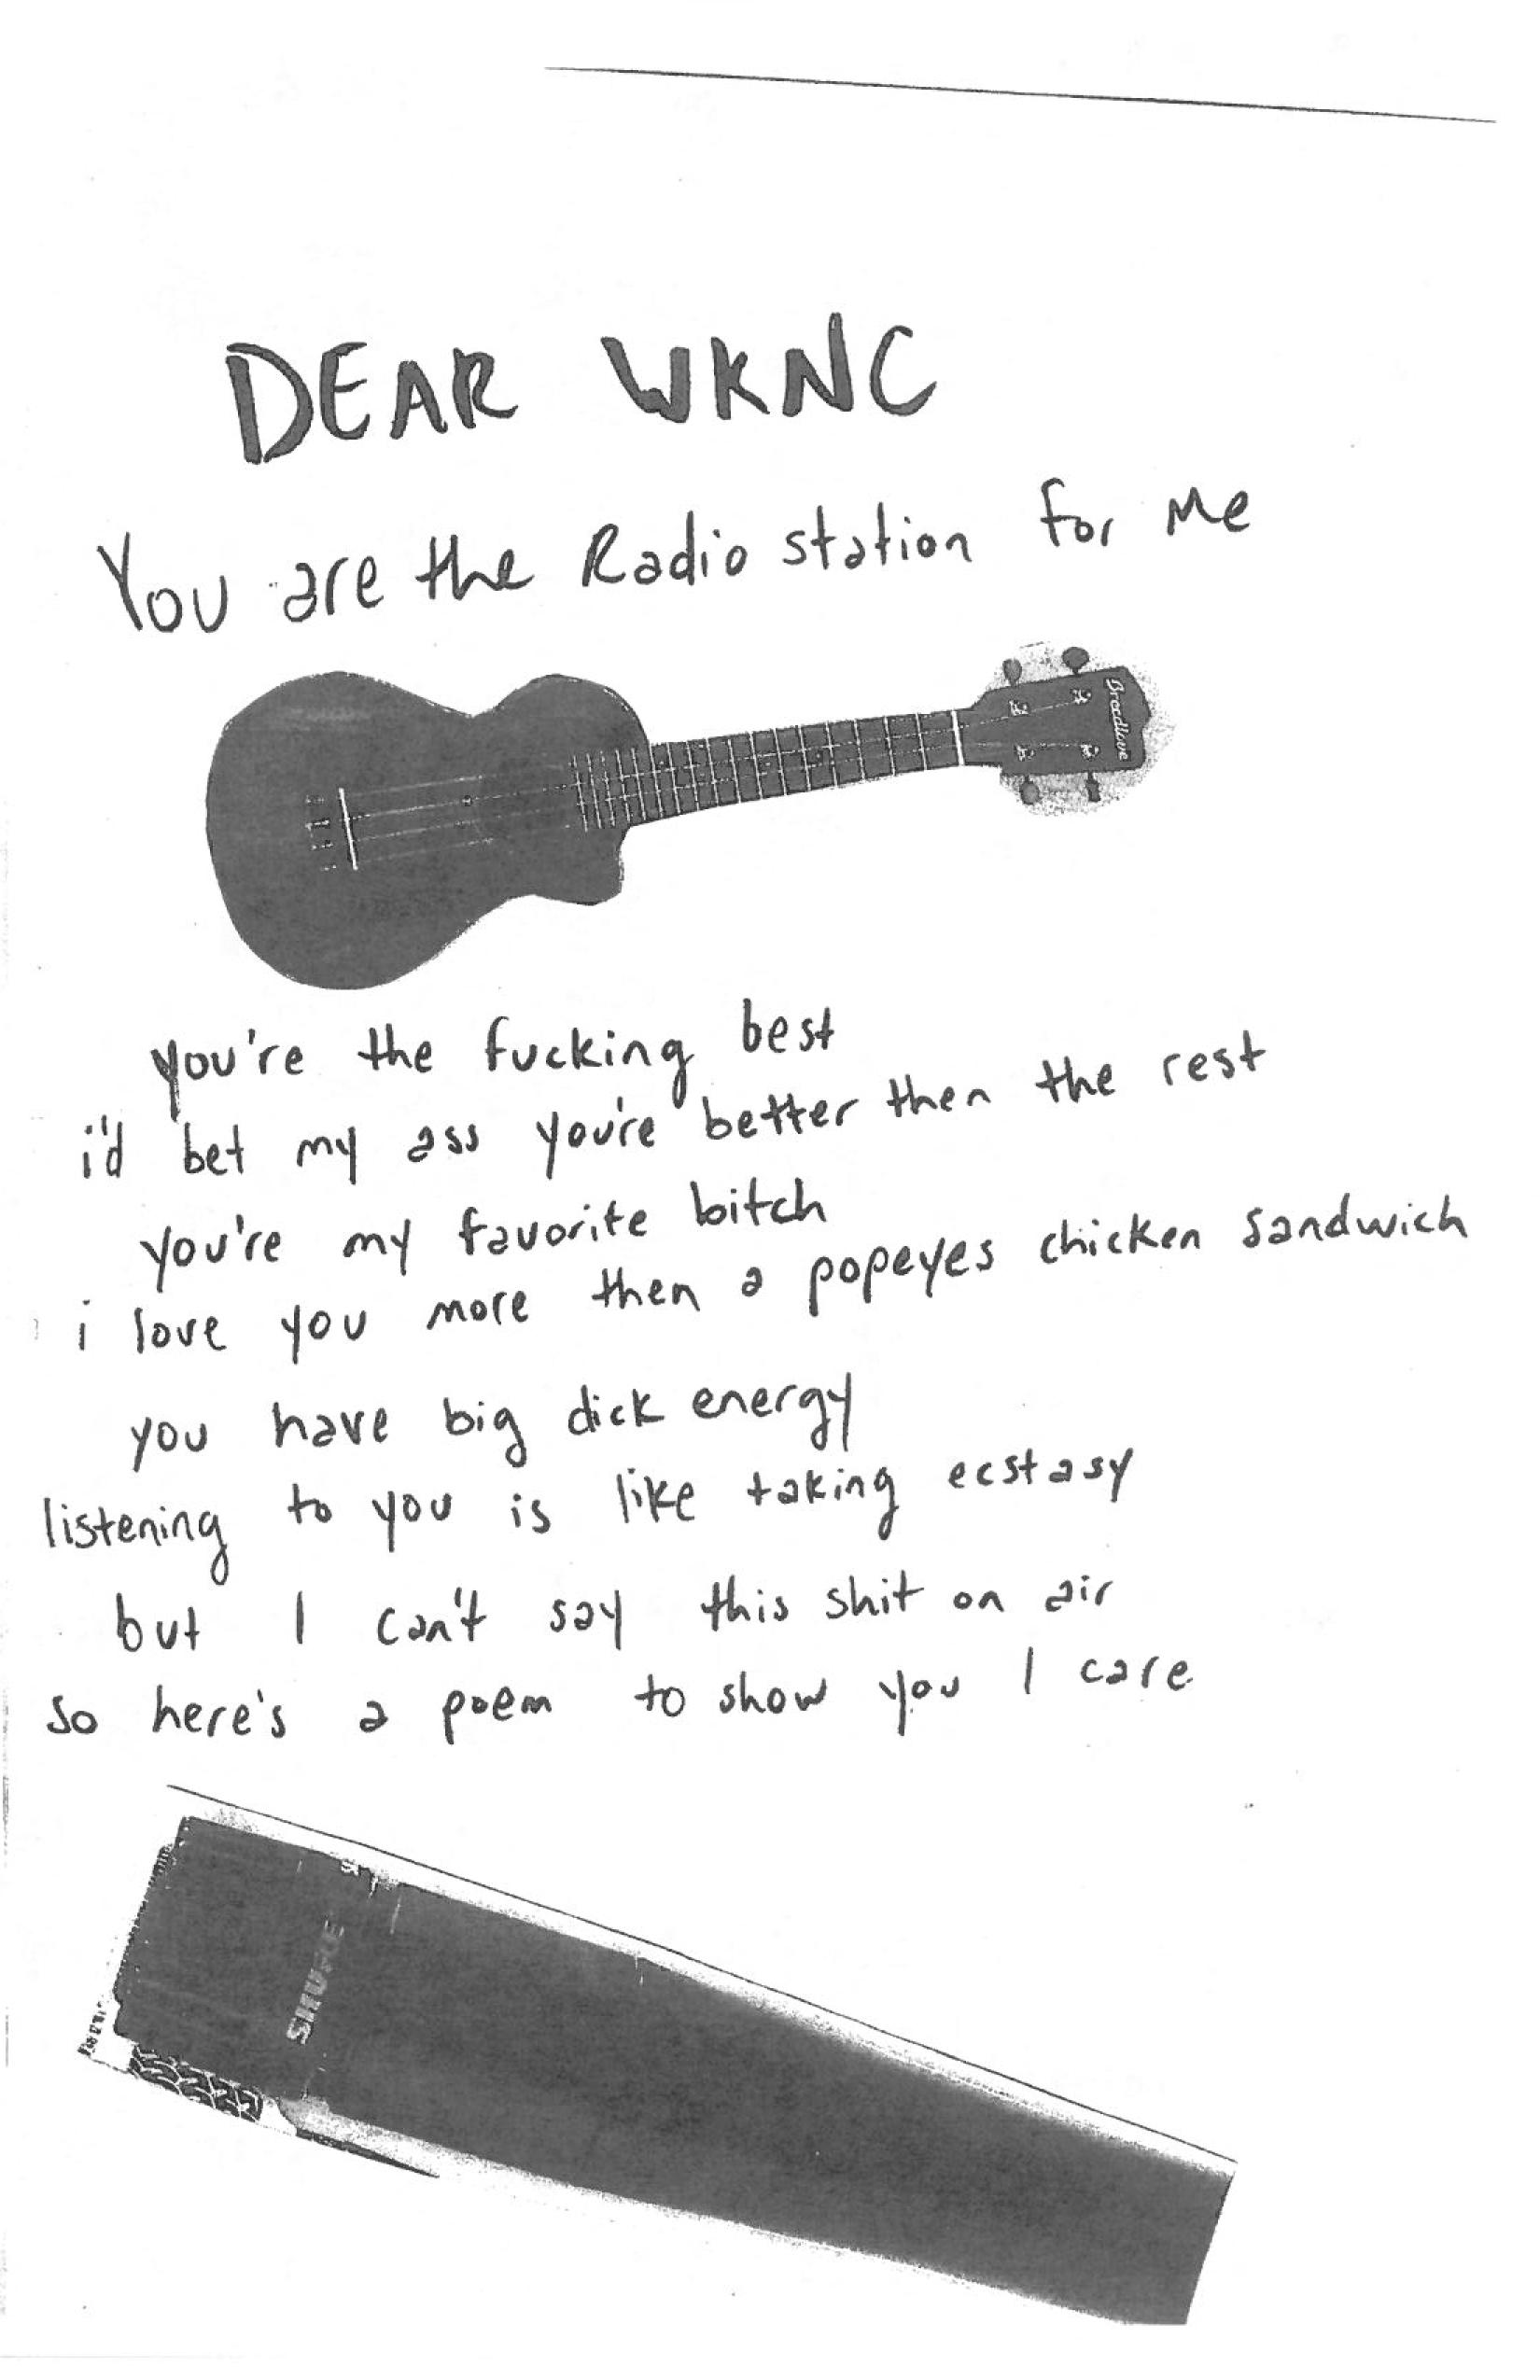 DEAR WKNC
You are the Radio station for me
Breedlove
you're the fucking best
i'd bet my ass you're better then the rest
you're my favorite bitch
i love you more then a popeyes chicken sandwich
you have big dick energy
listening to you is like taking ecstasy
but I can't say this shit on air
so here's a poem to show you I care
SHURE